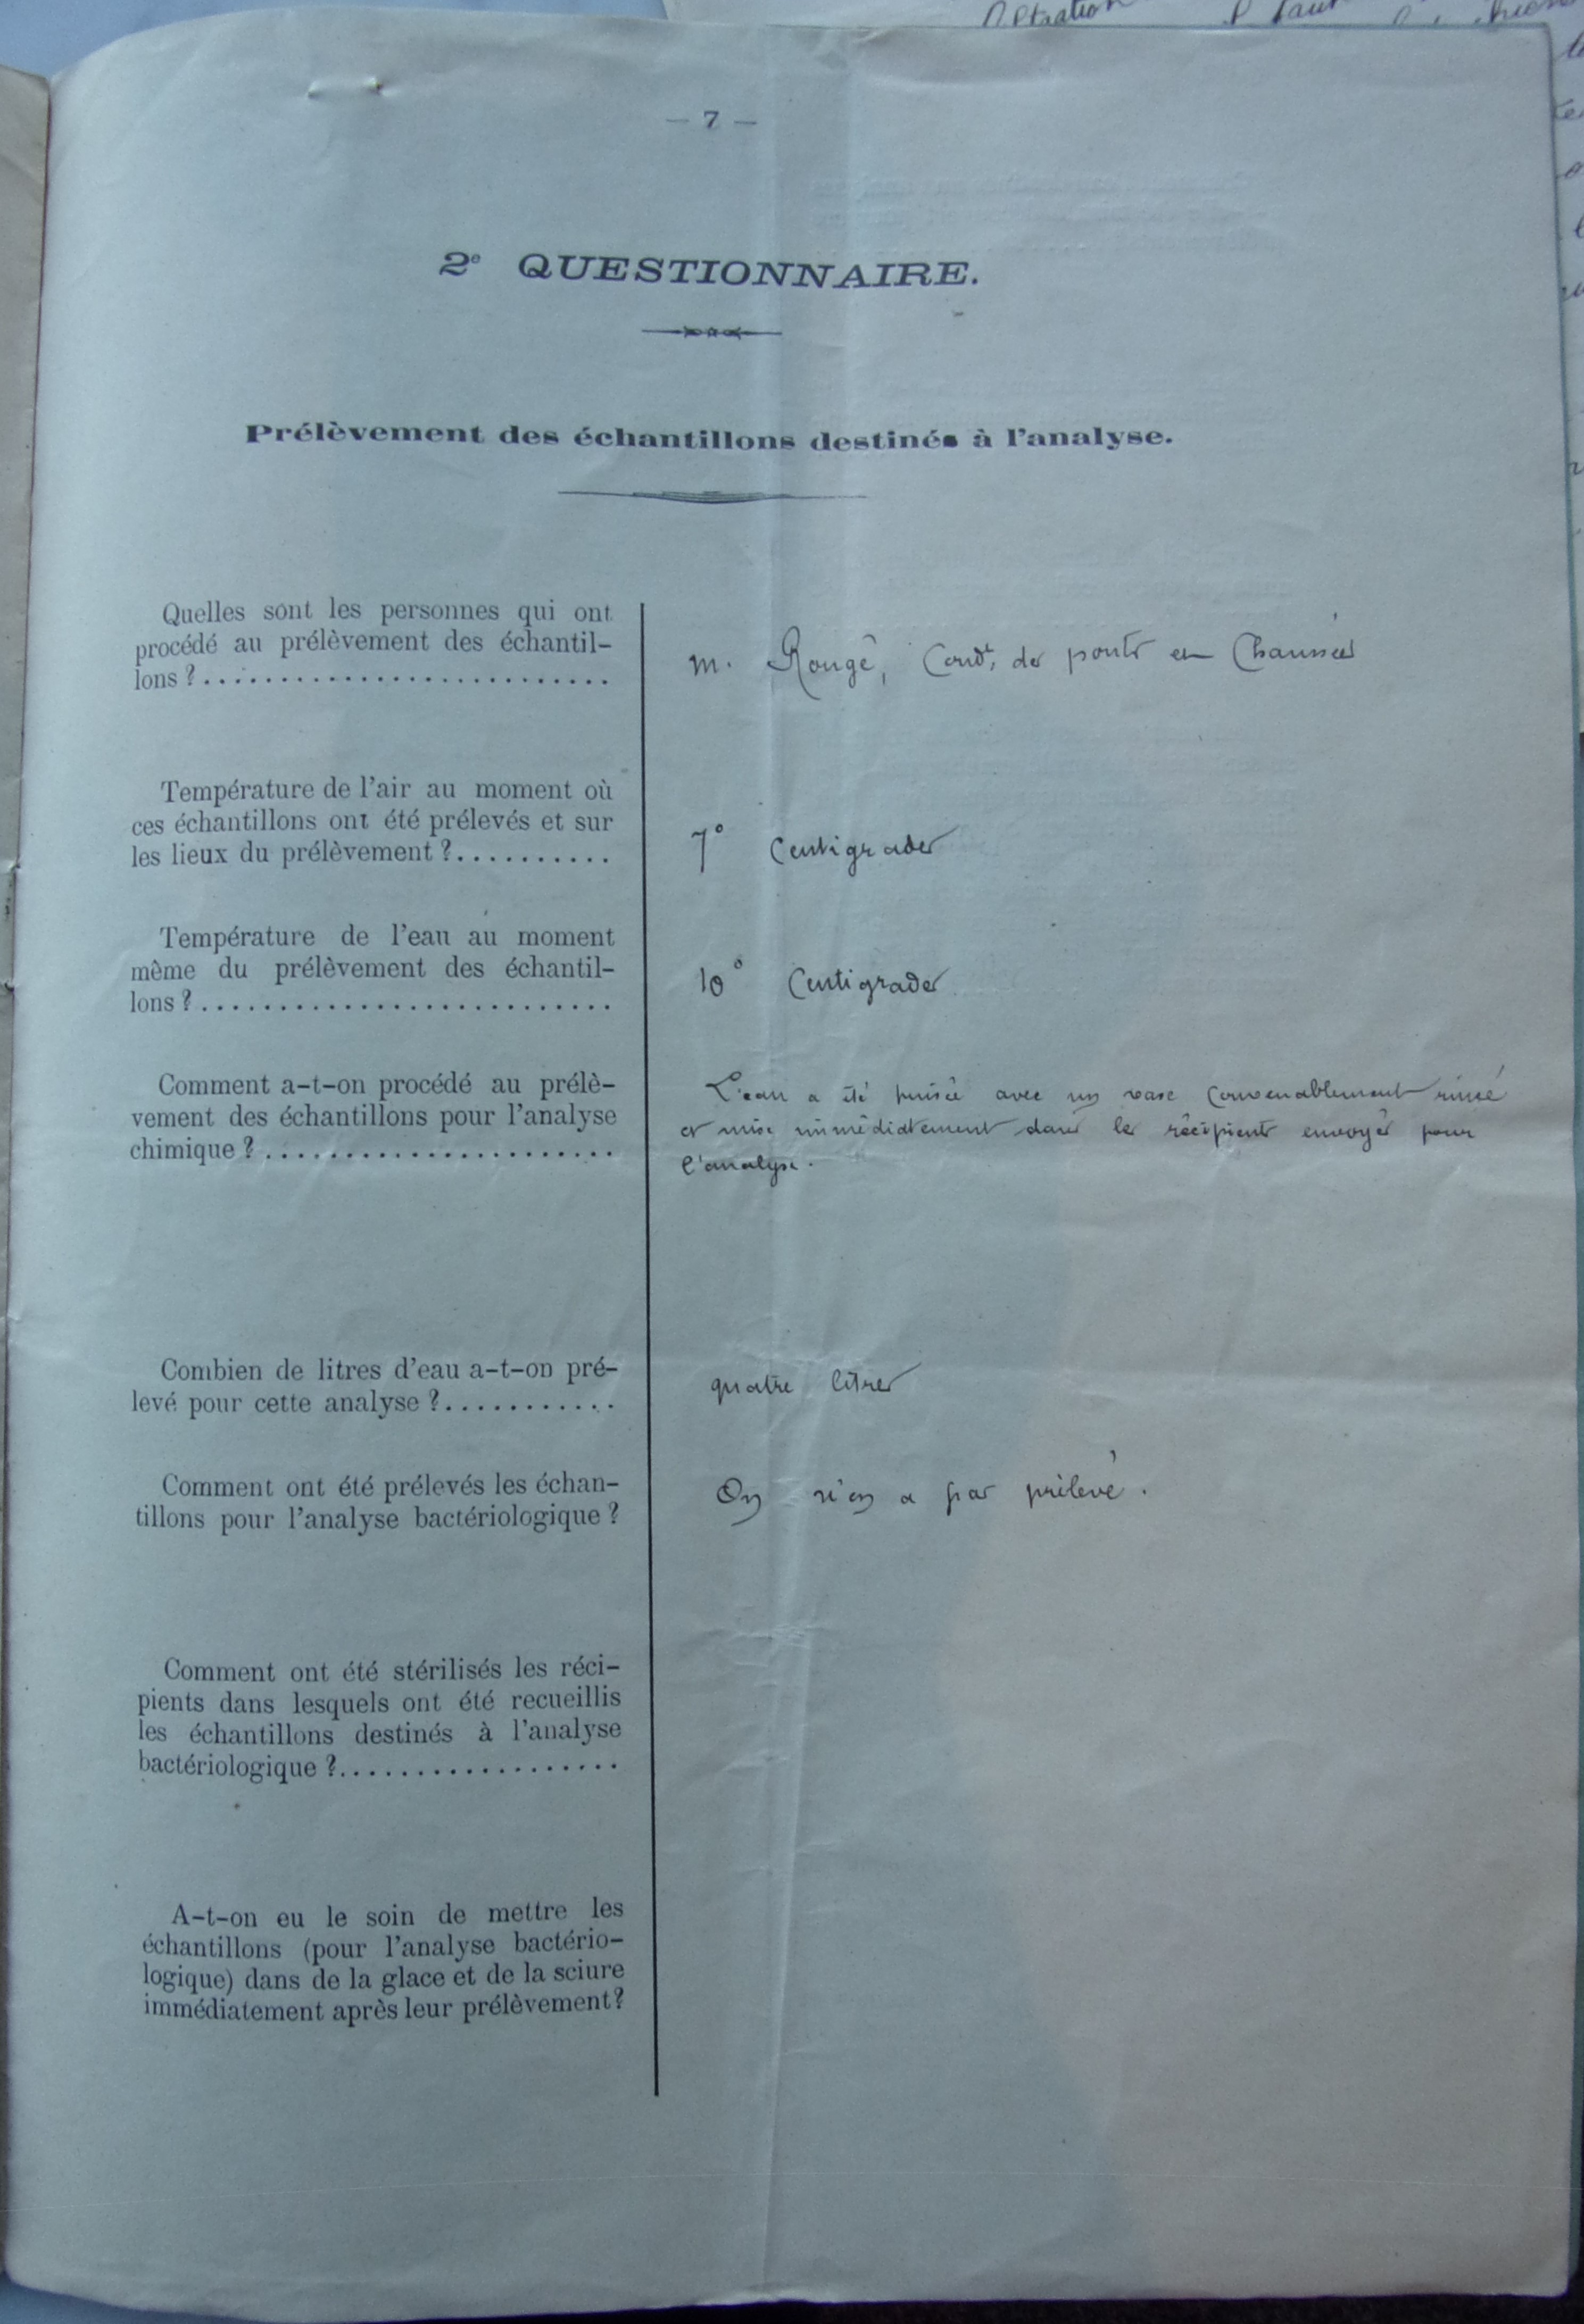 — 7 —
2e QUESTIONNAIRE.
Prélèvement des échantillons destinés à l'analyse.
Quelles sont les personnes qui ont
procédé au prélèvement des échantil-
lons ?..........................
M. Rougé, Condr des ponts et Chaussées
Température de l'air au moment où
ces échantillons ont été prélevés et sur
les lieux du prélèvement ?..........
7° Centigrades
Température de l'eau au moment
même du prélèvement des échantil-
lons ?..........................
10° Centigrades
Comment a-t-on procédé au prélè-
vement des échantillons pour l'analyse
chimique ?......................
L'eau a été puisée avec un vase convenablement rincé
et mise immédiatement dans les récipients envoyés pour
l'analyse.
Combien de litres d'eau a-t-on pré-
levé pour cette analyse ?...........
quatre litres
Comment ont été prélevés les échan-
tillons pour l'analyse bactériologique ?
On n'en a pas prélevé.
Comment ont été stérilisés les réci-
pients dans lesquels ont été recueillis
les échantillons destinés à l'analyse
bactériologique ?..................
A-t-on eu le soin de mettre les
échantillons (pour l'analyse bactério-
logique) dans de la glace et de la sciure
immédiatement après leur prélèvement?